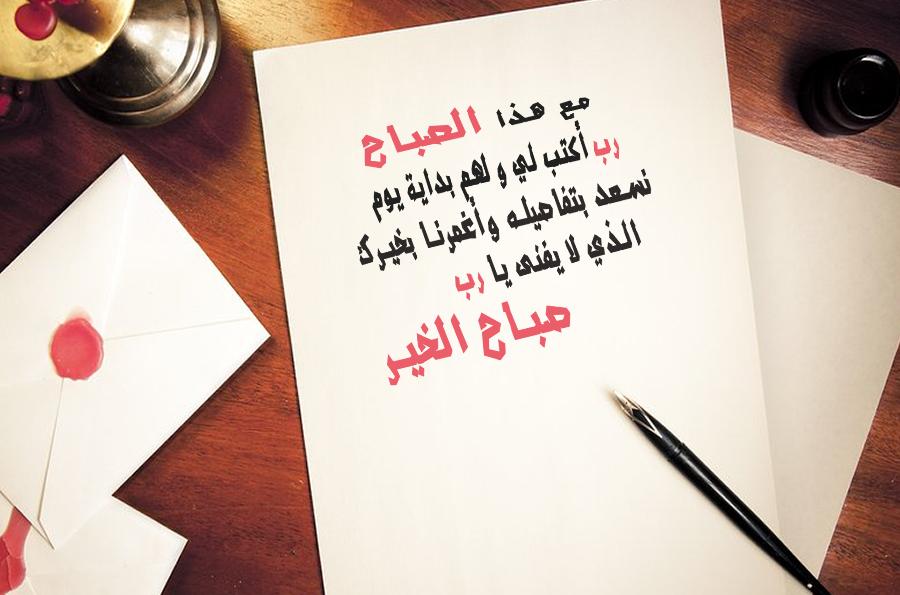 مع هذا الصباح
رب أكتب لي ولهم بداية يوم
نسعد بتفاصيله وأغمرنا بخيرك
الذي لا يفنى يا رب
صباح الخير